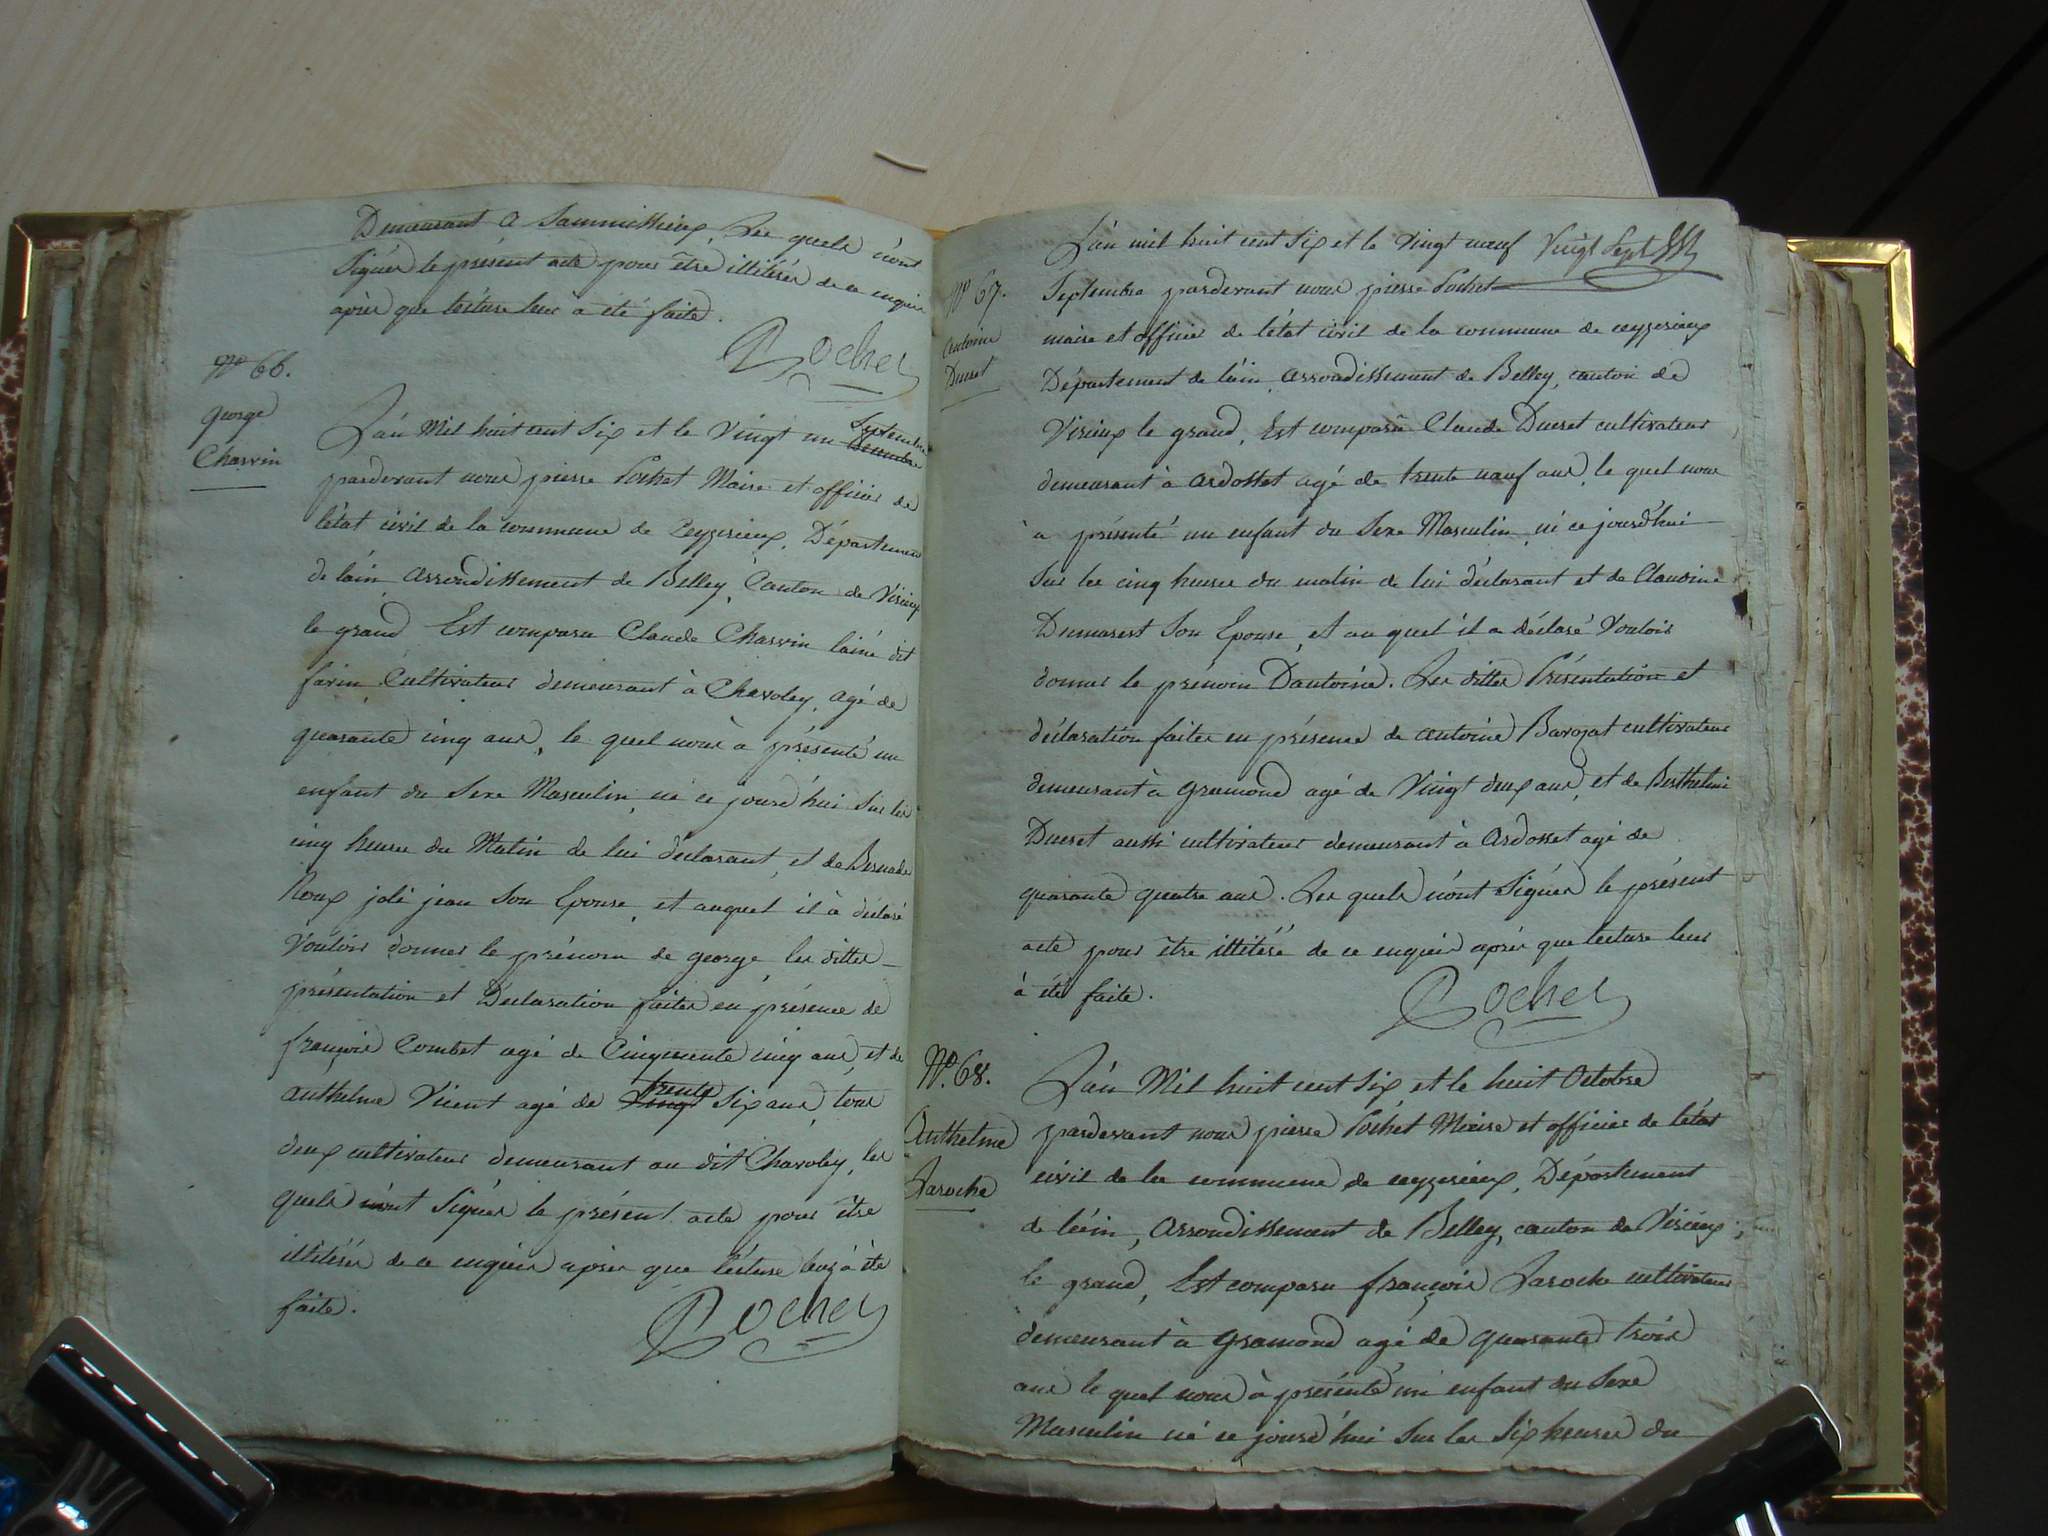 Demeurant a Sammissieux, Les quels n'ont
Signés le présent acte pour être illitérés de ce enquis
après que lecture leur a été faite.
Pochet
N° 66.
george
Charvin
L'an Mil huit cent Six et le Vingt un Septembre
pardevant nous pierre Pochet Maire et officier de
l'état civil de la commune de Ceyzerieux, Département
de l'ain, arrondissement de Belley, Canton de Virieux
le grand Est comparu Claude Charvin l'ainé dit
farin Cultivateur demeurant à Chavoley, agé de
quarante cinq ans, le quel nous à présenté un
enfant du Sexe Masculin, né ce jourd'hui Sur les
cinq heure du Matin de lui déclarant, et de Bernarde
Roux joli jean Son Epouse, et auquel il à déclaré
Vouloir donner le prénom de george, les dittes
présentation et Déclaration faites en présence de
françois Combet agé de Cinquante cinq ans, et de
anthelme Vicent agé de trente Six ans, tous
deux cultivateur demeurant au dit Chavoley, les
quels n'ont Signés le présent acte pour être
illitérés de ce enquis après que lécture leur à été
faite.
Pochet
N° 67.
antoine
Ducret
L'an mil huit cent Six et le Vingt neuf Vingt Sept
Septembre pardevant nous pierre Pochet
maire et officier de l'état civil de la commune de ceyzerieux
Département de l'ain, arrondissement de Belley, canton de
Virieux le grand, Est comparu Claude Ducret cultivateur
demeurant à ardosset agé de trente neuf ans, le quel nous
à présenté un enfant du Sexe Masculin, né ce jourd'hui
Sur les cinq heures du matin de lui déclarant et de Claudine
Dumarest Son Epouse, et au quel il a déclaré Vouloir
donner le prénom D'antoine. Les dittes Présentation et
déclaration faites en présence de antoine Barozat cultivateur
demeurant à gramond agé de Vingt deux ans, et de Berthelmi
Ducret aussi cultivateur demeurant à Ardosset agé de
quarante quatre ans. Les quels n'ont Signés le présent
acte pour être illitéré de ce enquis après que lecture leur
à été faite.
Pochet
N° 68.
Anthelme
Laroche
L'an Mil huit cent Six, et le huit Octobre
pardevant nous pierre Pochet Maire et officier de l'état
civil de la commune de ceyzerieux, Département
de l'ain, arrondissement de Belley, canton de Virieux
le grand, Est comparu françois Laroche cultivateur
demeurant à gramond agé de quarante trois
ans le quel nous à présenté un enfant du Sexe
Masculin né ce jourd'hui Sur les Six heures du